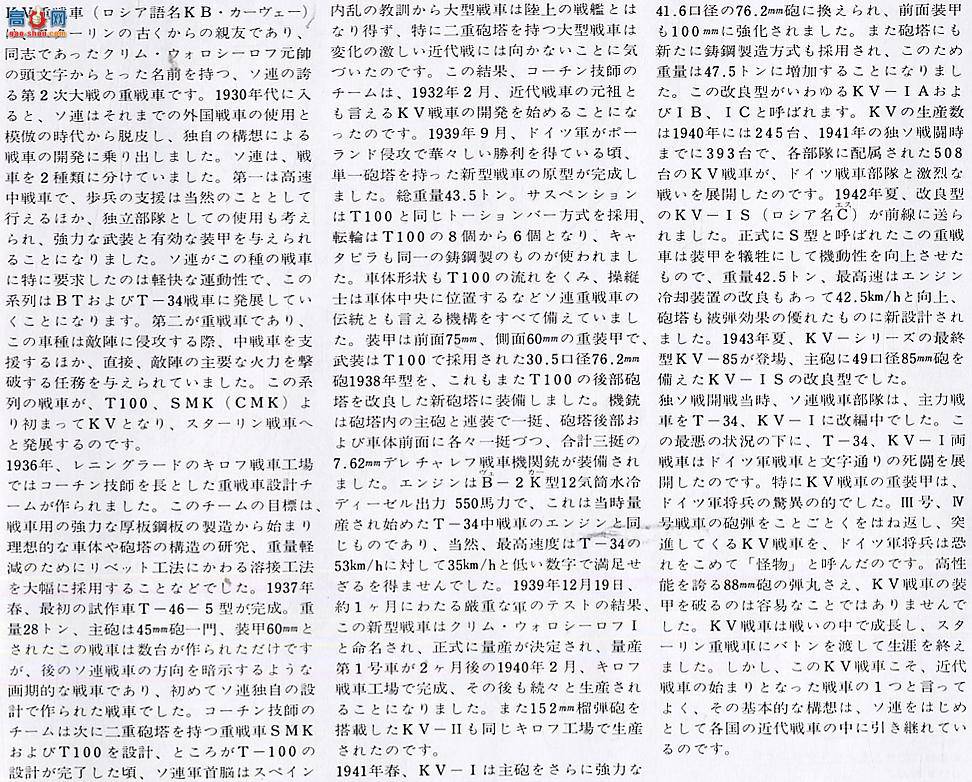 高网
KV重戦車（ロシア語名KB・カーヴェー）
ーリンの古くからの親友であり、
同志であったクリム・ウォロシーロフ元帥
の頭文字からとった名前を持つ、ソ連の誇
る第2次大戦の重戦車です。1930年代に入
ると、ソ連はそれまでの外国戦車の使用と
模倣の時代から脱皮し、独自の構想による
戦車の開発に乗り出しました。ソ連は、戦
車を2種類に分けていました。第一は高速
中戦車で、歩兵の支援は当然のこととして
行えるほか、独立部隊としての使用も考え
られ、強力な武装と有効な装甲を与えられ
ることになりました。ソ連がこの種の戦車
に特に要求したのは軽快な運動性で、この
系列はBTおよびT－34戦車に発展してい
くことになります。第二が重戦車であり、
この車種は敵陣に侵攻する際、中戦車を支
援するほか、直接、敵陣の主要な火力を撃
破する任務を与えられていました。この系
列の戦車が、T100、SMK（CMK）よ
り初まってKVとなり、スターリン戦車へ
と発展するのです。
1936年、レニングラードのキロフ戦車工場
ではコーチン技師を長とした重戦車設計チ
ームが作られました。このチームの目標は、
戦車用の強力な厚板鋼板の製造から始まり
理想的な車体や砲塔の構造の研究、重量軽
減のためにリベット工法にかわる溶接工法
を大幅に採用することなどでした。1937年
春、最初の試作車T－46－5型が完成。重
量28トン、主砲は45㎜砲一門、装甲60㎜と
されたこの戦車は数台が作られただけです
が、後のソ連戦車の方向を暗示するような
画期的な戦車であり、初めてソ連独自の設
計で作られた戦車でした。コーチン技師の
チームは次に二重砲塔を持つ重戦車SMK
およびT100を設計、ところがT－100の
設計が完了した頃、ソ連軍首脳はスペイン
内乱の教訓から大型戦車は陸上の戦艦とは
なり得ず、特に二重砲塔を持つ大型戦車は
変化の激しい近代戦には向かないことに気
づいたのです。この結果、コーチン技師の
チームは、1932年2月、近代戦車の元祖と
も言えるKV戦車の開発を始めることにな
ったのです。1939年9月、ドイツ軍がポー
ランド侵攻で華々しい勝利を得ている頃、
単一砲塔を持った新型戦車の原型が完成し
ました。総重量43.5トン。サスペンション
はT100と同じトーションバー方式を採用、
転輪はT100の8個から6個となり、キャ
タピラも同一の鋳鋼製のものが使われまし
た。車体形状もT100の流れをくみ、操縦
士は車体中央に位置するなどソ連重戦車の
伝統とも言える機構をすべて備えていまし
た。装甲は前面75㎜、側面60㎜の重装甲で、
武装はT100で採用された30.5口径76.2㎜
砲1938年型を、これもまたT100の後部砲
塔を改良した新砲塔に装備しました。機銃
は砲塔内の主砲と連装で一挺、砲塔後部お
よび車体前面に各々一挺づつ、合計三挺の
7.62㎜デレチャレフ戦車機関銃が装備され
ました。エンジンはB－2K型12気筒水冷
ディーゼル出力 550馬力で、これは当時量
産され始めたT－34中戦車のエンジンと同
じものであり、当然、最高速度はT－34の
53km/hに対して35km/hと低い数字で満足せ
ざるを得ませんでした。1939年12月19日、
約1ヶ月にわたる厳重な軍のテストの結果、
この新型戦車はクリム・ウォロシーロフI
と命名され、正式に量産が決定され、量産
第1号車が2ヶ月後の1940年2月、キロフ
戦車工場で完成、その後も続々と生産され
ることになりました。また152㎜榴弾砲を
搭載したKV－IIも同じキロフ工場で生産
されたのです。
1941年春、KV－Iは主砲をさらに強力な
41.6口径の76.2㎜砲に換えられ、前面装甲
も100㎜に強化されました。また砲塔にも
新たに鋳鋼製造方式も採用され、このため
重量は47.5トンに増加することになりまし
た。この改良型がいわゆるKV－IAおよ
びIB、ICと呼ばれます。KVの生産数
は1940年には245台、1941年の独ソ戦闘時
までに393台で、各部隊に配属された508
台のKV戦車が、ドイツ戦車部隊と激烈な
戦いを展開したのです。1942年夏、改良型
のKV－IS（ロシア名C）が前線に送ら
れました。正式にS型と呼ばれたこの重戦
車は装甲を犠牲にして機動性を向上させた
もので、重量42.5トン、最高速はエンジン
冷却装置の改良もあって42.5km/hと向上、
砲塔も被弾効果の優れたものに新設計され
ました。1943年夏、KV－シリーズの最終
型KV－85が登場、主砲に49口径85㎜砲を
備えたKV－ISの改良型でした。
独ソ戦開戦当時、ソ連戦車部隊は、主力戦
車をT－34、KV－Iに改編中でした。こ
の最悪の状況の下に、T－34、KV－I両
戦車はドイツ軍戦車と文字通りの死闘を展
開したのです。特にKV戦車の重装甲は、
ドイツ軍将兵の驚異の的でした。III号、IV
号戦車の砲弾をことごとくをはね返し、突
進してくるKV戦車を、ドイツ軍将兵は恐
れをこめて「怪物」と呼んだのです。高性
能を誇る88㎜砲の弾丸さえ、KV戦車の装
甲を破るのは容易なことではありませんで
した。KV戦車は戦いの中で成長し、スタ
ーリン重戦車にバトンを渡して生涯を終え
ました。しかし、このKV戦車こそ、近代
戦車の始まりとなった戦車の1つと言って
よく、その基本的な構想は、ソ連をはじめ
として各国の近代戦車の中に引き継れてい
るのです。